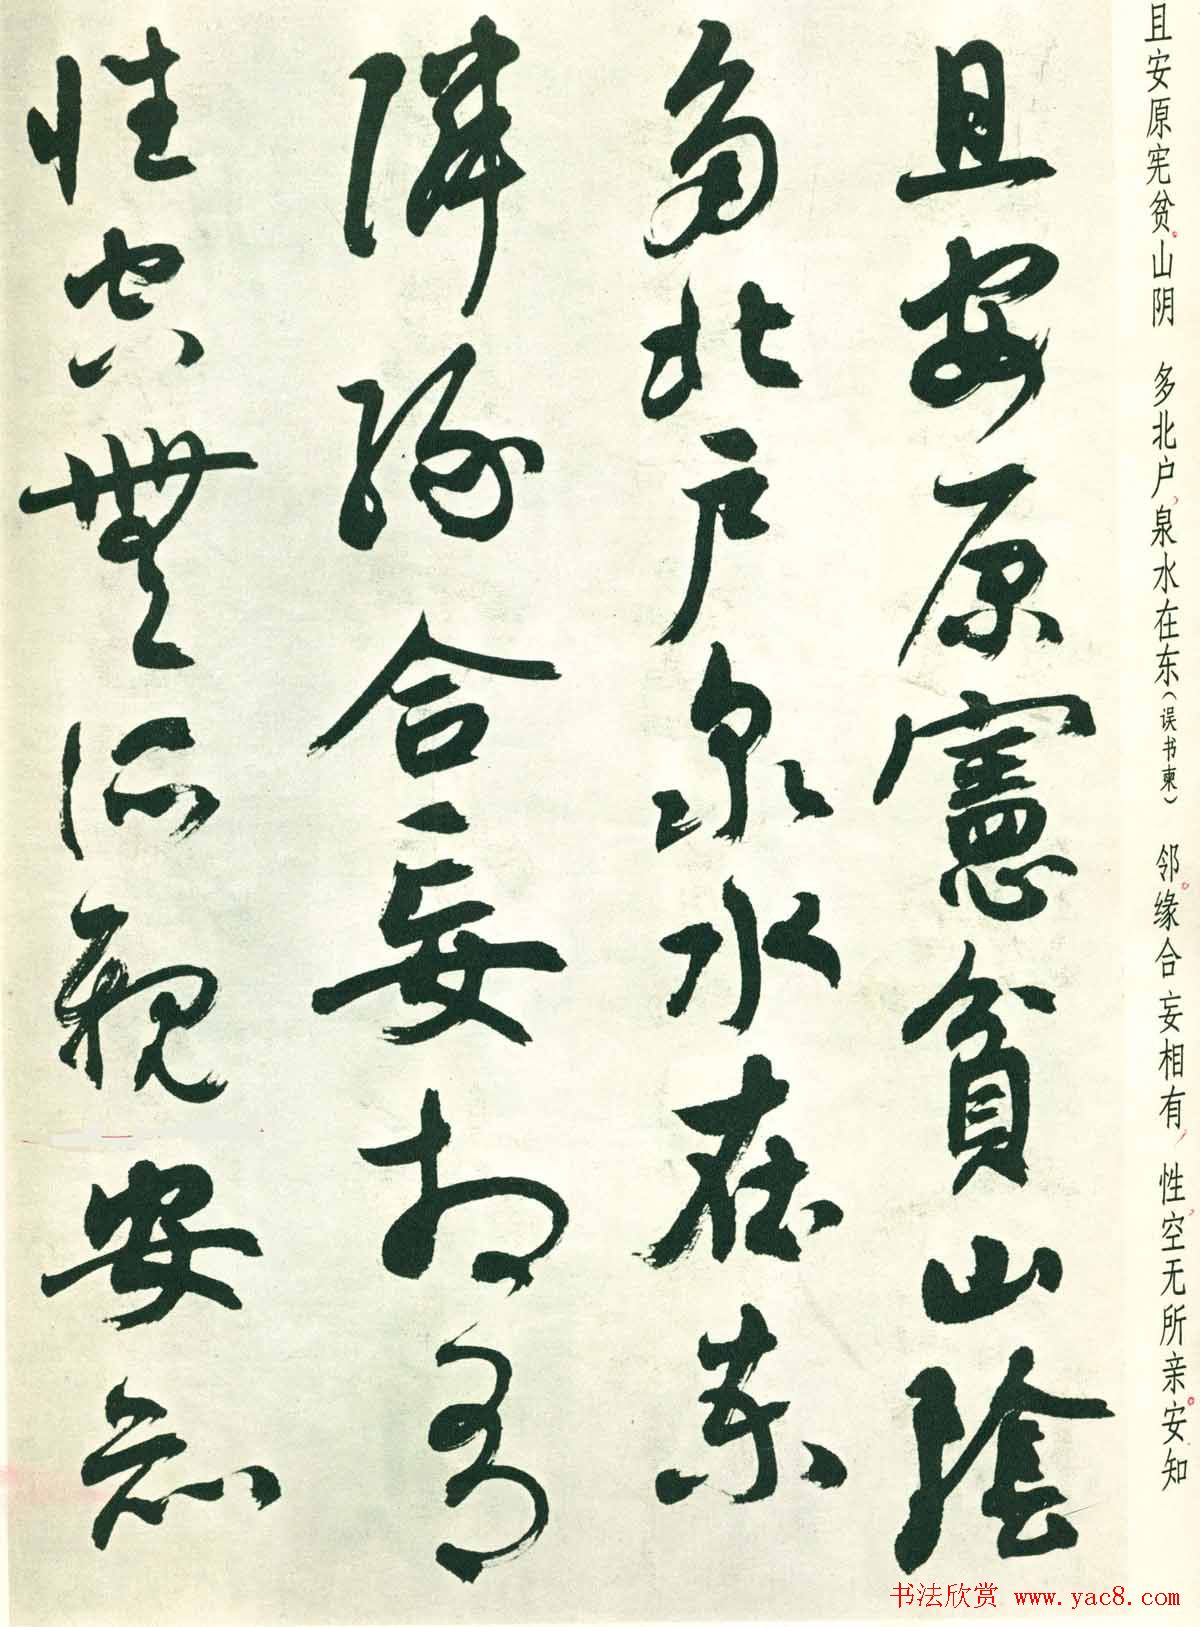 且安原憲貧山陰
多北户泉水在柬
隣緣合妄相有
性空無所親安知
且安原宪贫。山阴 多北户，泉水在东（误书柬） 邻。缘合妄相有，性空无所亲。安知
书法欣赏 www.yac8.com